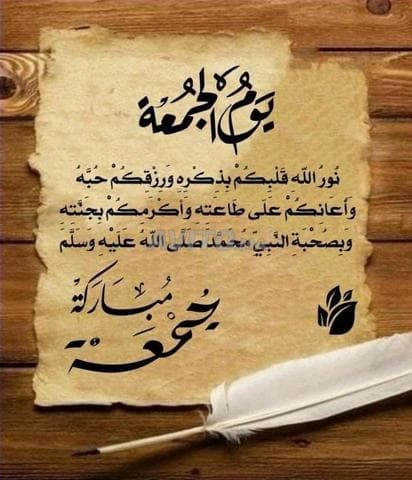 يَوْمُ الجُمُعَة
نُورُ اللّه قَلْبِكُمْ بِذِكْرِهِ وَرِزْقِكُمْ حُبَّهُ
وَأَعَانِكُمْ عَلَى طَاعَتِه وَأَكْرَمِكُمْ بِجَنَّتِه
وَبِصُحْبَةِ النَّبِيِّ مُحَمَّد صَلَّى اللّهُ عَلَيْهِ وَسَلَّمَ
جُمْعَة
مُبَارَكَة